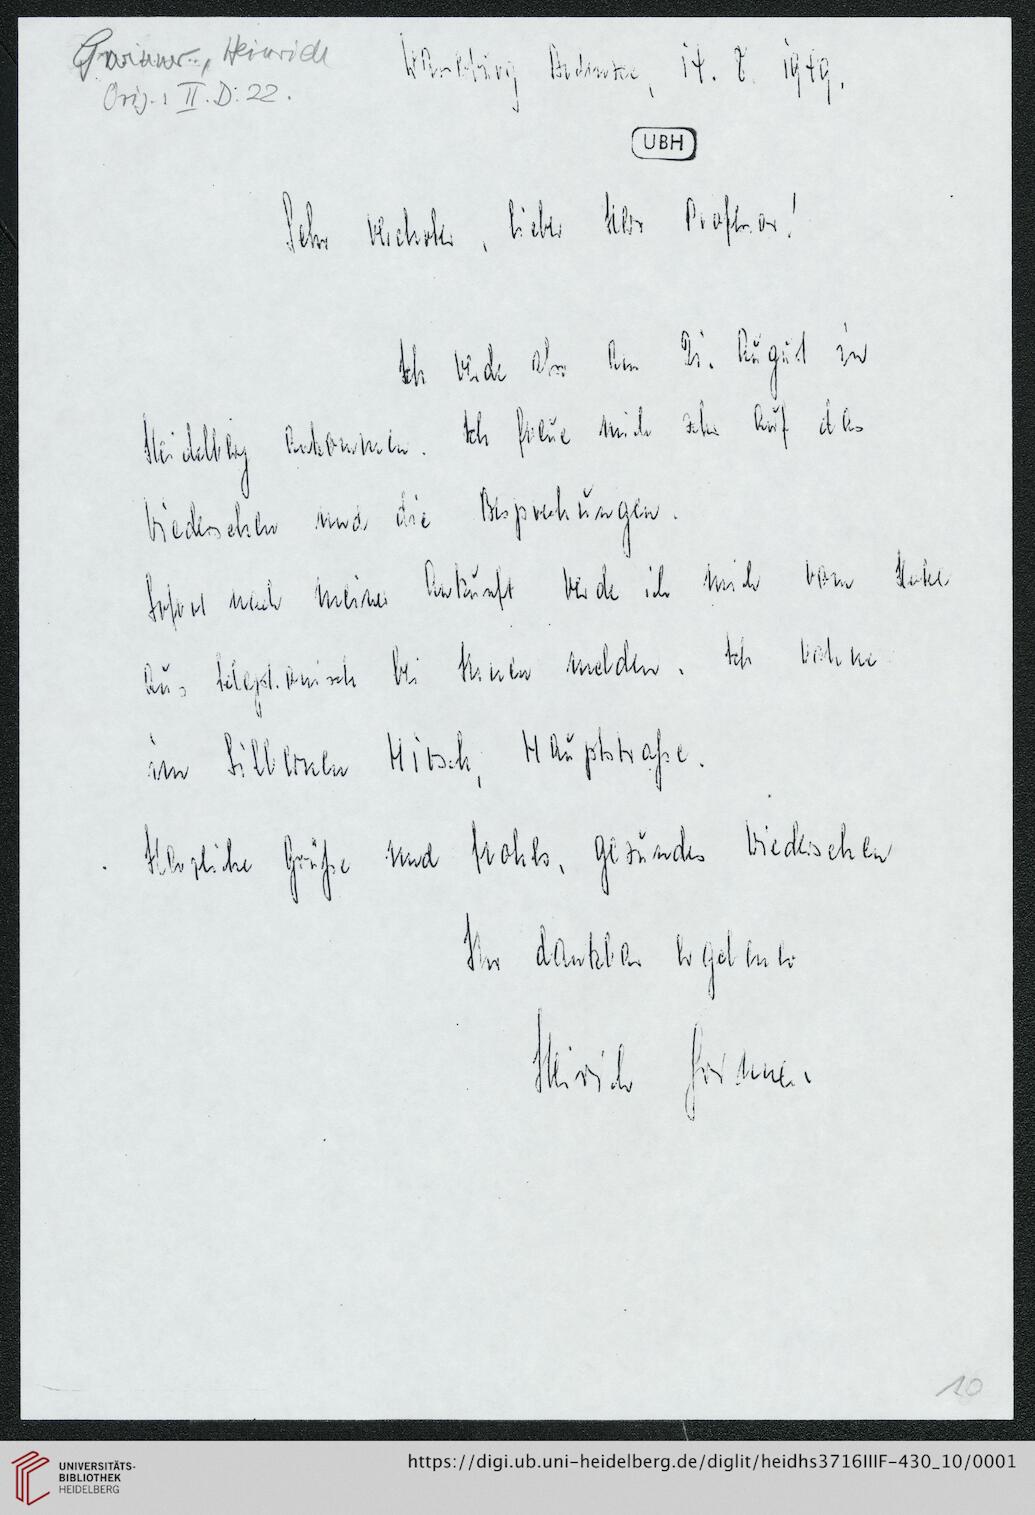 Heinrich
Orig.: II. D: 22.
Wasserburg Bodensee, 14. 8. 1949.
UBH
Sehr verehrter, lieber Herr Professor!
Ich werde also am 21. August in
Heidelberg ankommen. Ich freue mich sehr auf das
Wiedersehen und die Besprechungen.
Sofort nach meiner Ankunft werde ich mich vom Hotel
aus telephonisch bei Ihnen melden. Ich wohne
im Silbernen Hirsch, Hauptstraße.
Herzliche Grüße und frohes, gesundes Wiedersehen
Ihr dankbar ergebener
Heinrich
10
UNIVERSITÄTS-
BIBLIOTHEK
HEIDELBERG
https://digi.ub.uni-heidelberg.de/diglit/heidhs3716IIIF-430_10/0001